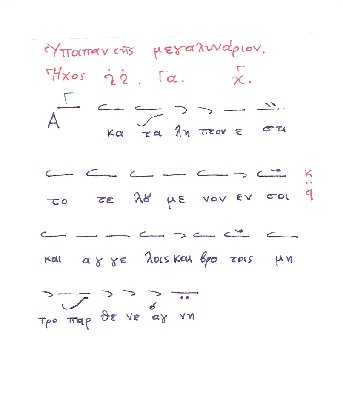 Ὑπαπαντῆς μεγαλυνάριον.
Ἦχος Γα.
Α κα τα λη πτον ε στι
το τε λού με νον εν σοι
και αγ γε λοις και βρο τοις μη
τρο παρ θε νε αγ νη